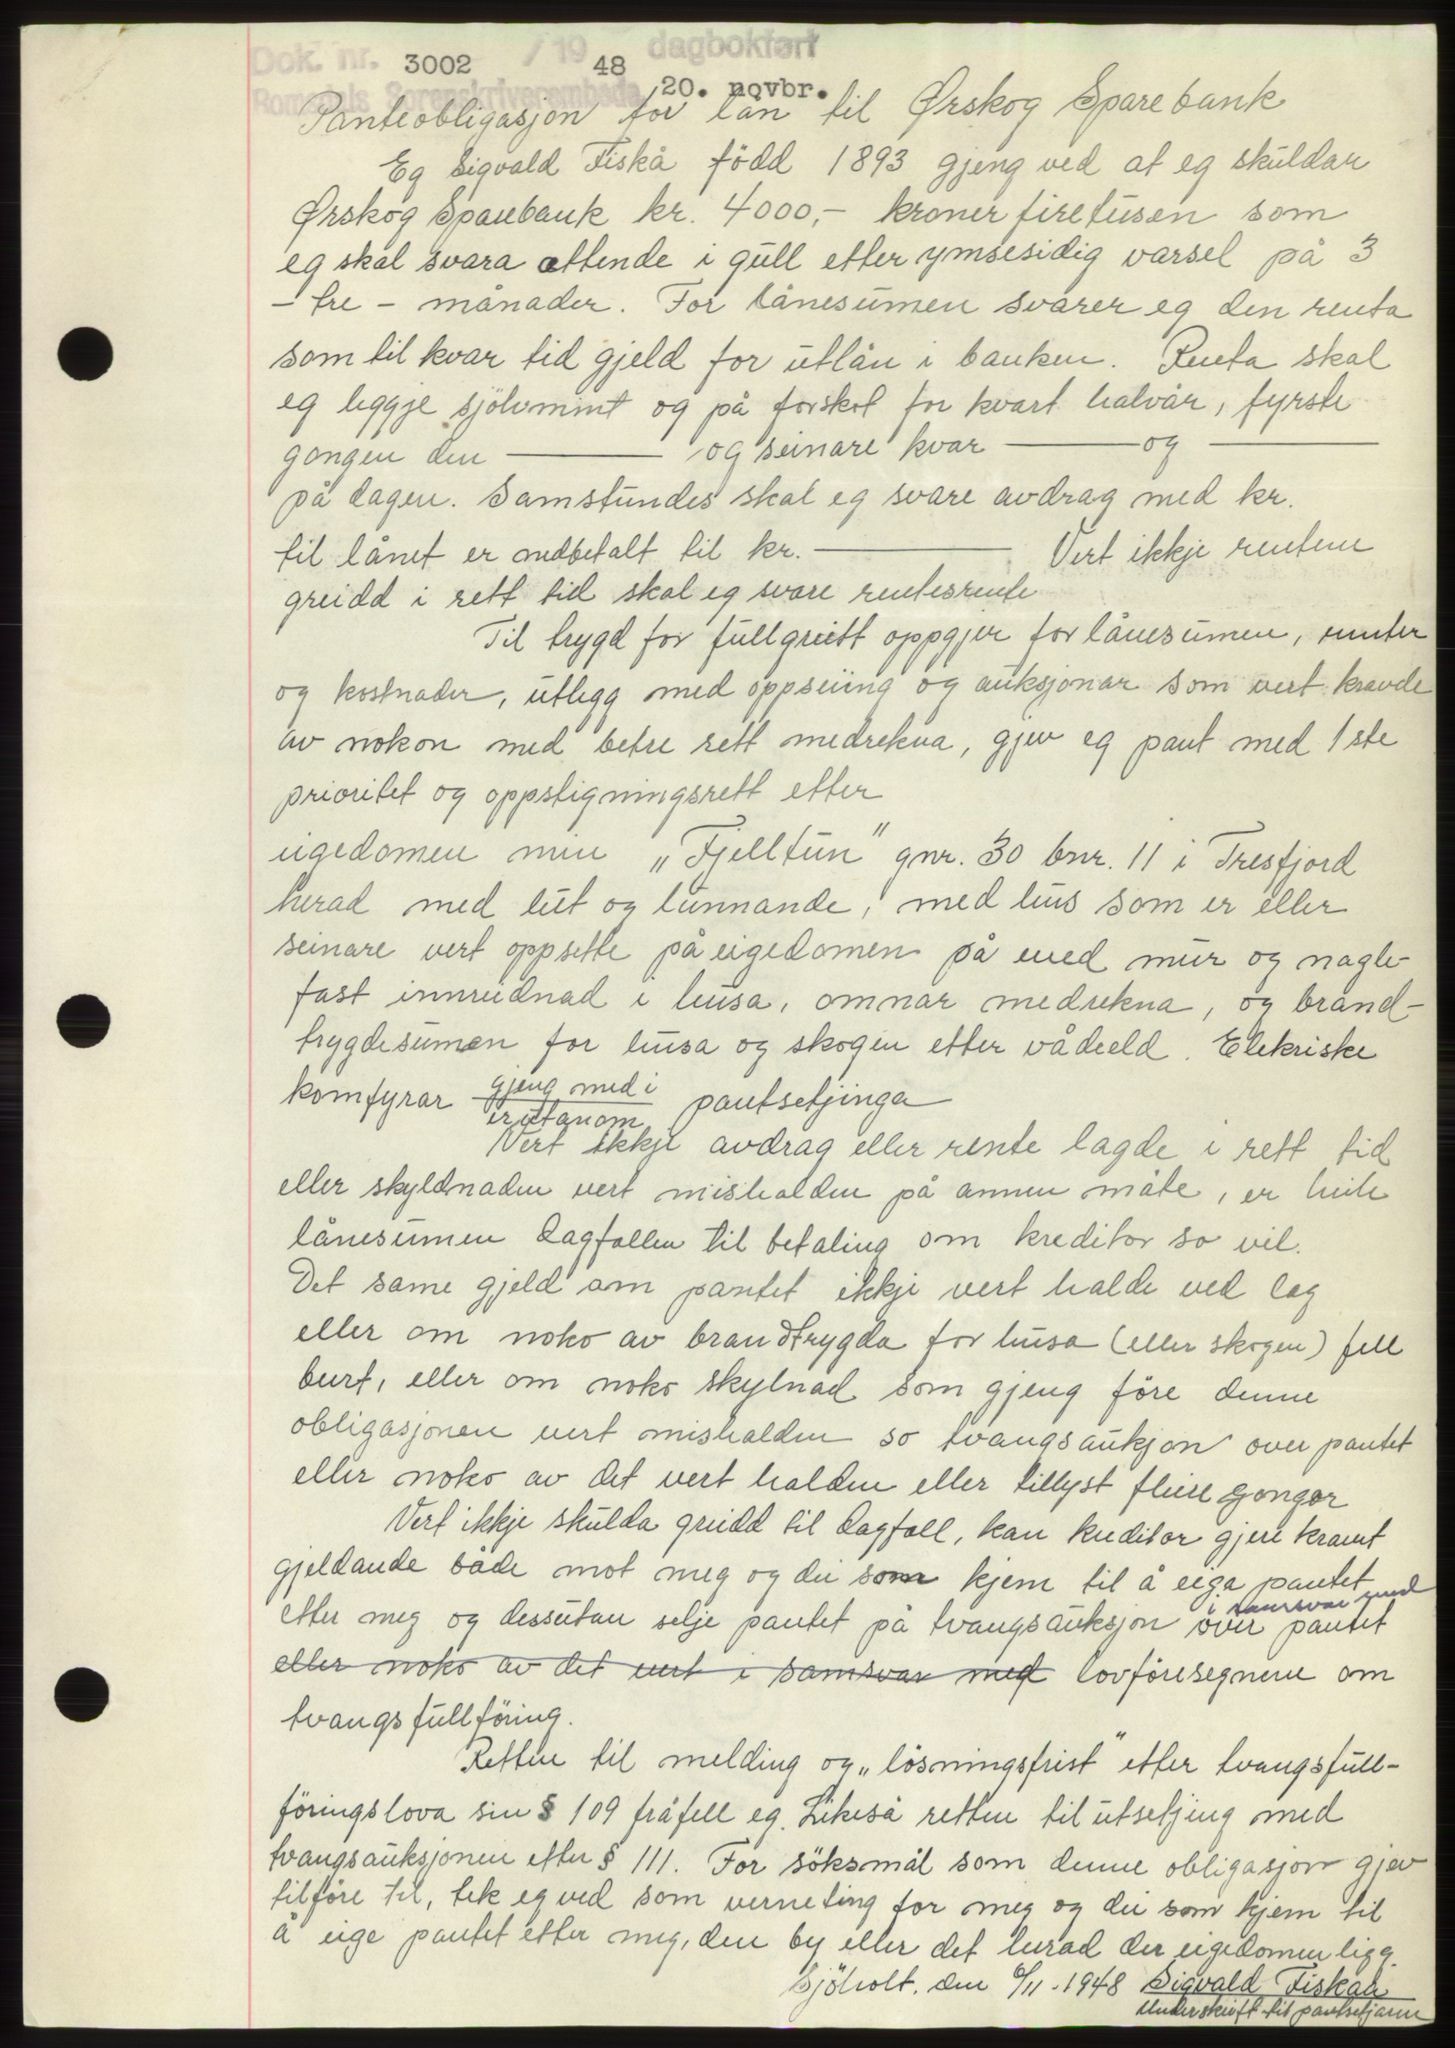 Dok. nr. 3002 / 19 48 dagbokført
Romsdals Sorenskriverembede 20. novbr.
Panteobligasjon for lån til Ørskog Sparebank
Eg Sigvald Fiskå född 1893 gjeng ved at eg skuldar
Ørskog Sparebank kr. 4000,- kroner firetusen som
eg skal svara attende i gull etter ymsesidig varsel på 3
- tre - månader. For lånesumen svarer eg den renta
som til kvar tid gjeld for utlån i banken. Renta skal
eg leggje sjölvmint og på forskot for kvart halvår, fyrste
gongen den ——— og seinare kvar ——— og ———
på dagen. Samstundes skal eg svare avdrag med kr.
til lånet er nedbetalt til kr. ——— Vert ikkje rentene
greidd i rett tid skal eg svare rentesrente
Til trygd for fullgreitt oppgjer for lånesumen, renter
og kostnader, utlegg med oppseiing og auksjonar som vert kravde
av nokon med betre rett medrekna, gjev eg pant med 1ste
prioritet og oppstigningsrett etter
eigedomen min „Fjelltun" gnr. 30 bnr. 11 i Tresfjord
herad med lut og lunnande, med hus som er eller
seinare vert oppsette på eigedomen på med mur og nagle-
fast innreidnad i husa, omnar medrekna, og brand-
trygdesumen for husa og skogen etter vådeeld. Elekriske
komfyrar gjeng med i pantsetjinga
er utanom
Vert ikkje avdrag eller rente lagde i rett tid
eller skyldnaden vert mishalden på annen måte, er heile
lånesumen dagfallen til betaling om kreditor so vil.
Det same gjeld om pantet ikkje vert halde ved lag
eller om noko av brandtrygda for husa (eller skogen) fell
burt, eller om noko skylnad som gjeng före denne
obligasjonen vert mishalden so tvangsaukjon over pantet
eller noko av det vert halden eller tillyst fleire gongor
Vert ikkje skulda greidd til dagfall, kan kreditor gjere kravet
gjeldande både mot meg og dei som kjem til å eiga pantet
i samsvar med
etter meg og dessutan selje pantet på tvangsauksjon over pantet
eller noko av det vert i samsvar med lovföresegnene om
tvangsfullföring.
Retten til melding og „lösningsfrist" etter tvangsfull-
föringslova sin § 109 fråfell eg. Likeså retten til utsetjing med
tvangsauksjonen efter § 111. For söksmål som denne obligasjon gjev
tilföre til, tek eg ved som verneting for meg og dei som kjem til
å eige pantet etter meg, den by eller det herad der eigedomen ligg.
Sjöholt, den 6/11 - 1948 Sigvald Fiskaa
Underskrift til pantsetjaren